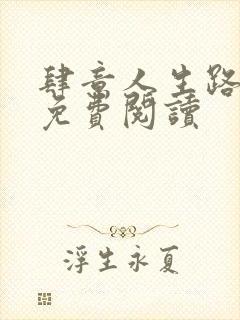 肆意人生路
免費閱讀
浮生永夏